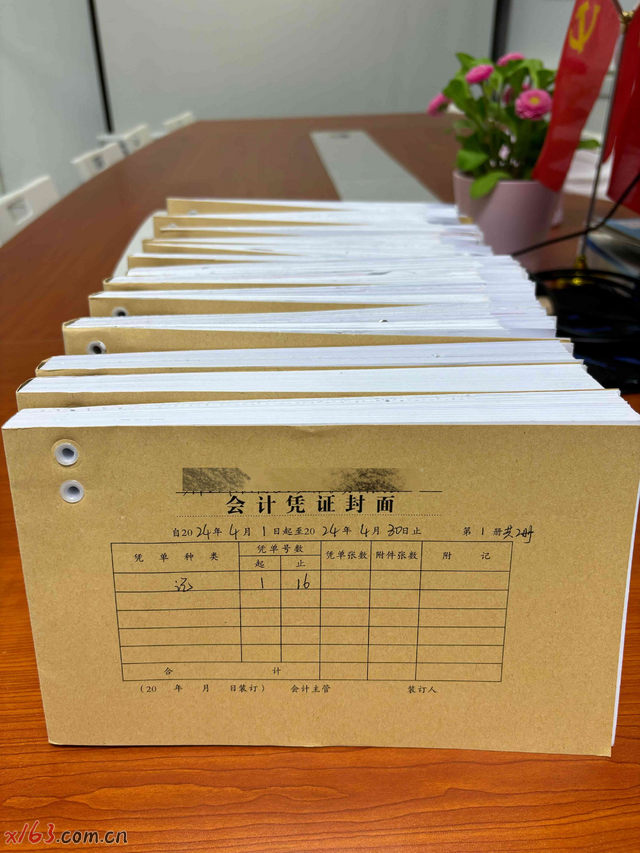 会计凭证封面
自2024年4月1日起至2024年4月30日止 第1册共2册
凭单种类 凭单号数 凭单张数 附件张数 附记
起 止
记 1 16
合计
(20 年 月 日装订) 会计主管 装订人
x163.com.cn